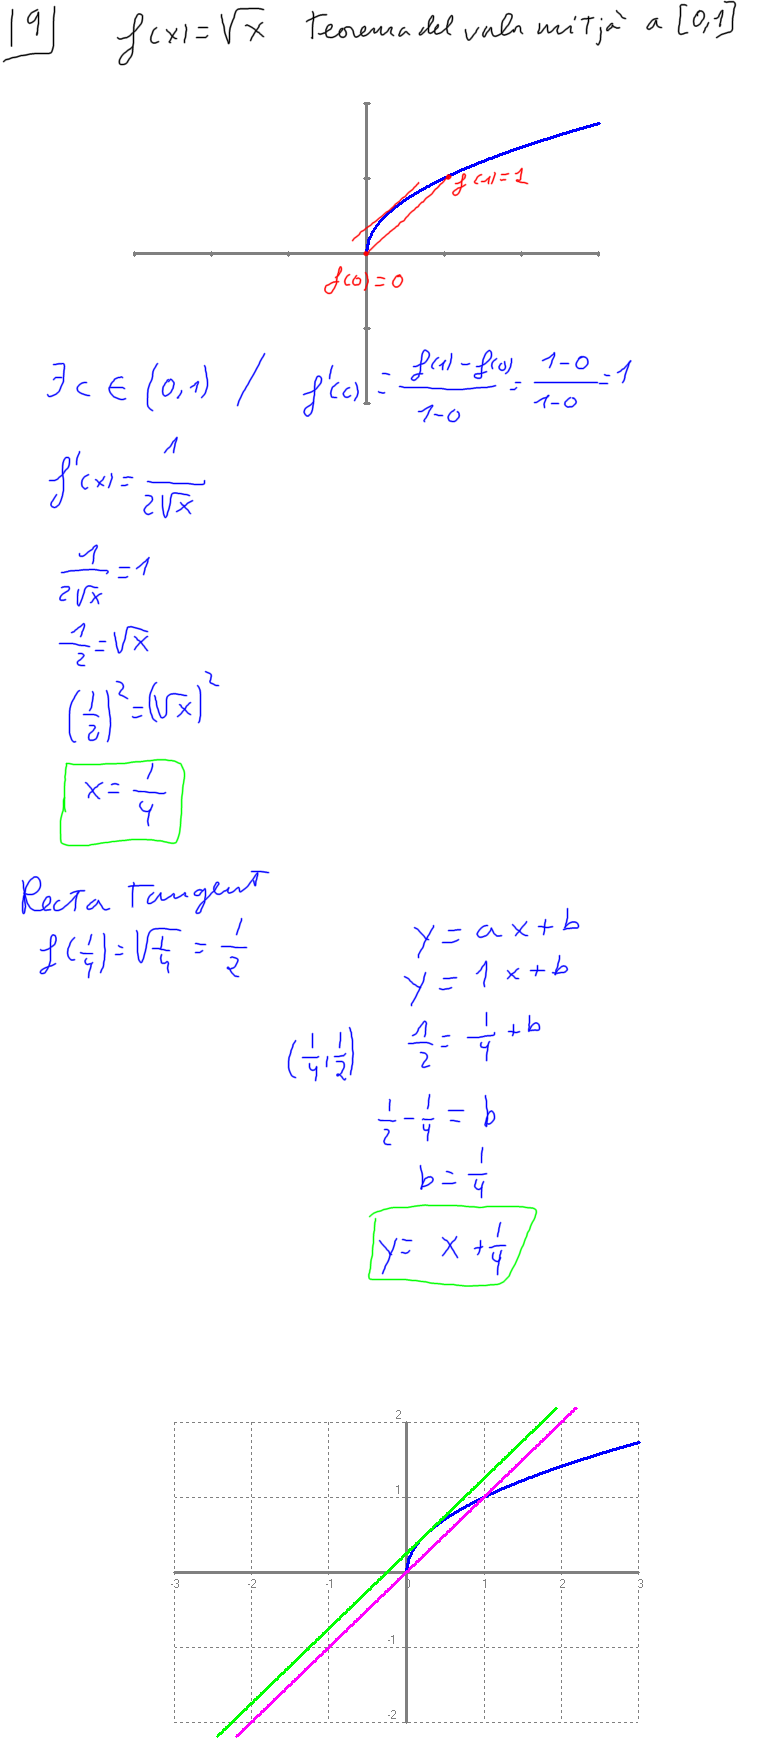 19 f(x)=√x Teorema del valor mitjà a [0,1]
f(1)=1
f(0)=0
∃c ∈ (0,1) / f'(c) = (f(1)-f(0))/(1-0) = (1-0)/(1-0) = 1
f'(x) = 1/(2√x)
1/(2√x) = 1
1/2 = √x
(1/2)² = (√x)²
x = 1/4
Recta Tangent
f(1/4) = √(1/4) = 1/2
y = ax+b
y = 1x+b
(1/4, 1/2) 1/2 = 1/4 + b
1/2 - 1/4 = b
b = 1/4
y = x + 1/4
2
1
-3 -2 -1 0 1 2 3
-1
-2